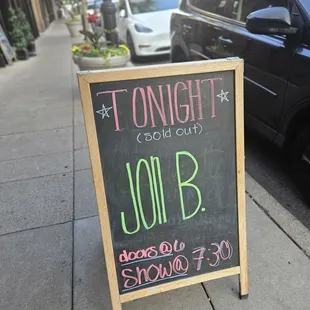 TONIGHT
(sold out)
JON B.
doors@6
Show@7:30